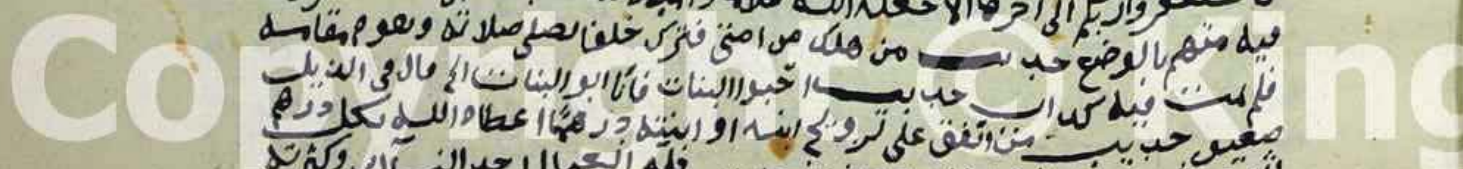 واربكم الى اخرها الا جعله الله
فيه متهم بالوضع حديث من هلك من امتي فترك خلفا يصلي صلاته ويقوم مقامه
فلم يمت فيه كداب حديث احبوا البنات فانا ابو البنات الخ قال في الذيل
ضعيف حديث من انفق على تزويج ابنه او ابنته درهما اعطاه الله بكل درهم
Copyright © King